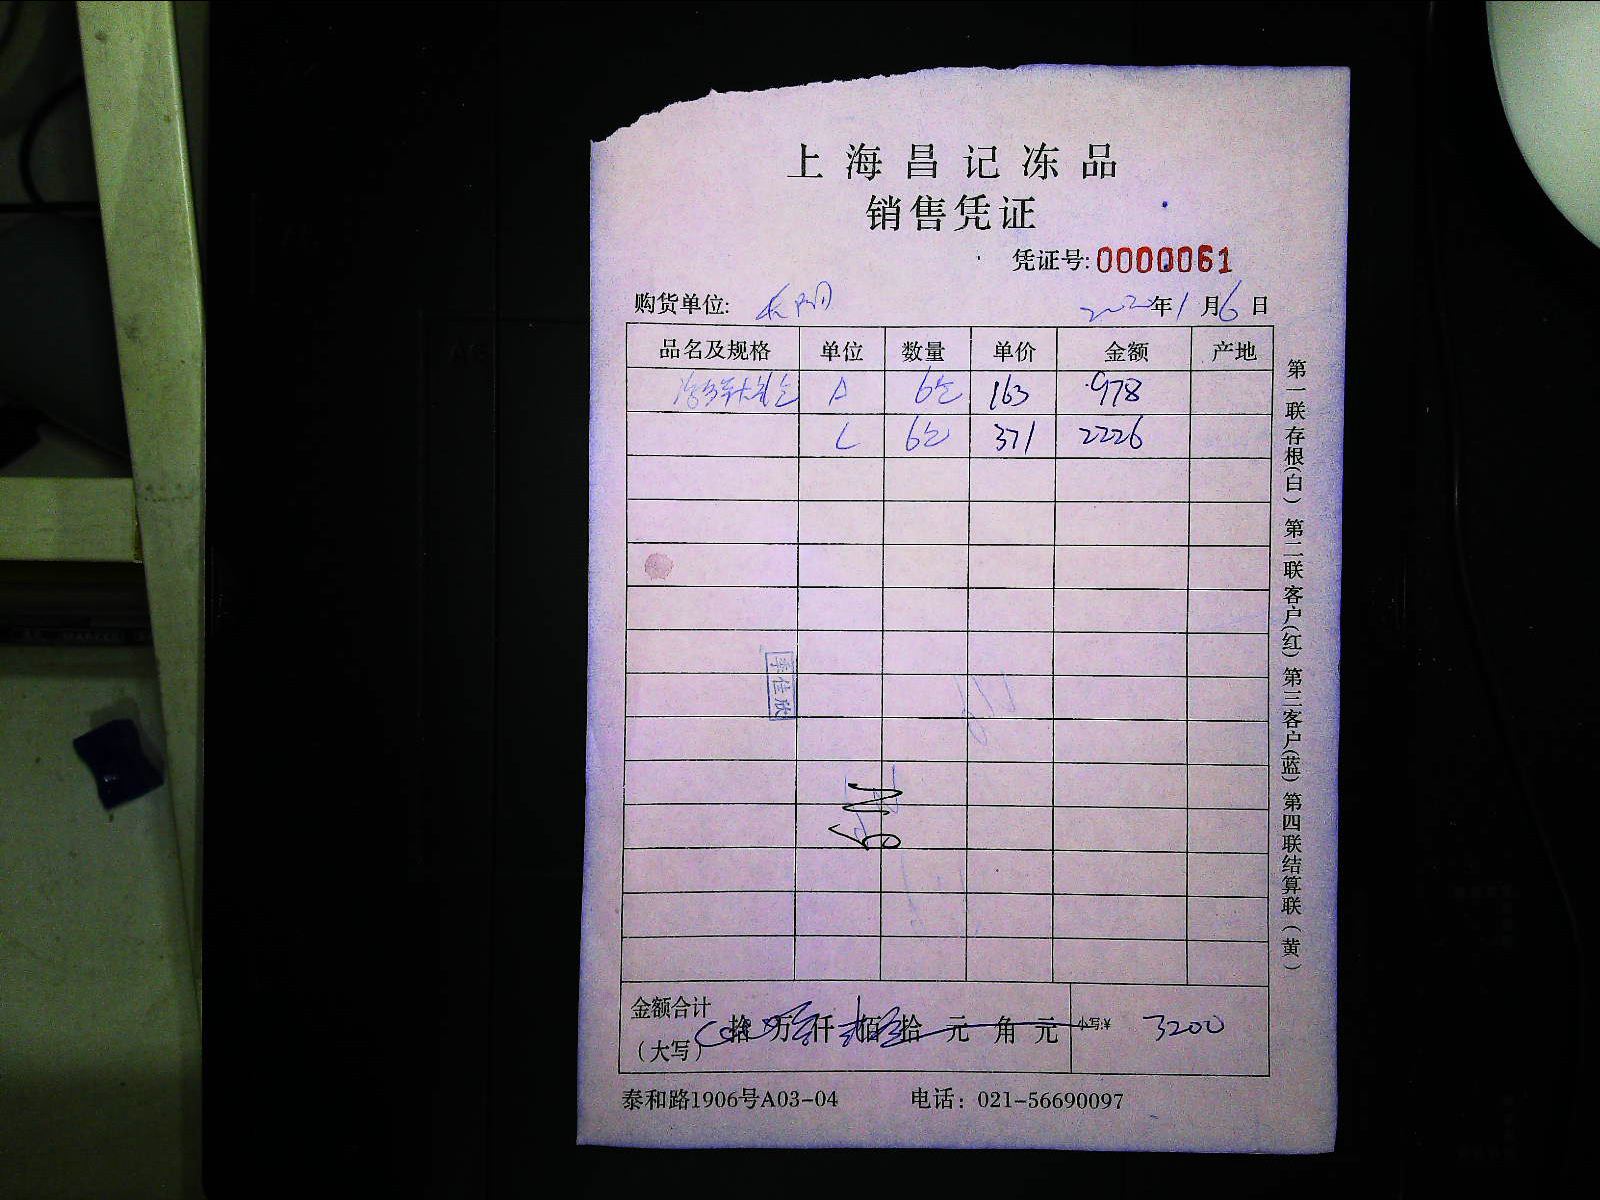 上海昌记冻品
销售凭证
凭证号:0000061
购货单位: 2020年1月6日
品名及规格 单位 数量 单价 金额 产地
A 6包 163 978
L 6包 371 2226
李佳欣
金额合计
（大写） 拾 万 仟 佰 拾 元 角 元 小写:¥ 3200
泰和路1906号A03-04 电话：021-56690097
第一联存根(白) 第二联客户(红) 第三客户(蓝) 第四联结算联(黄)